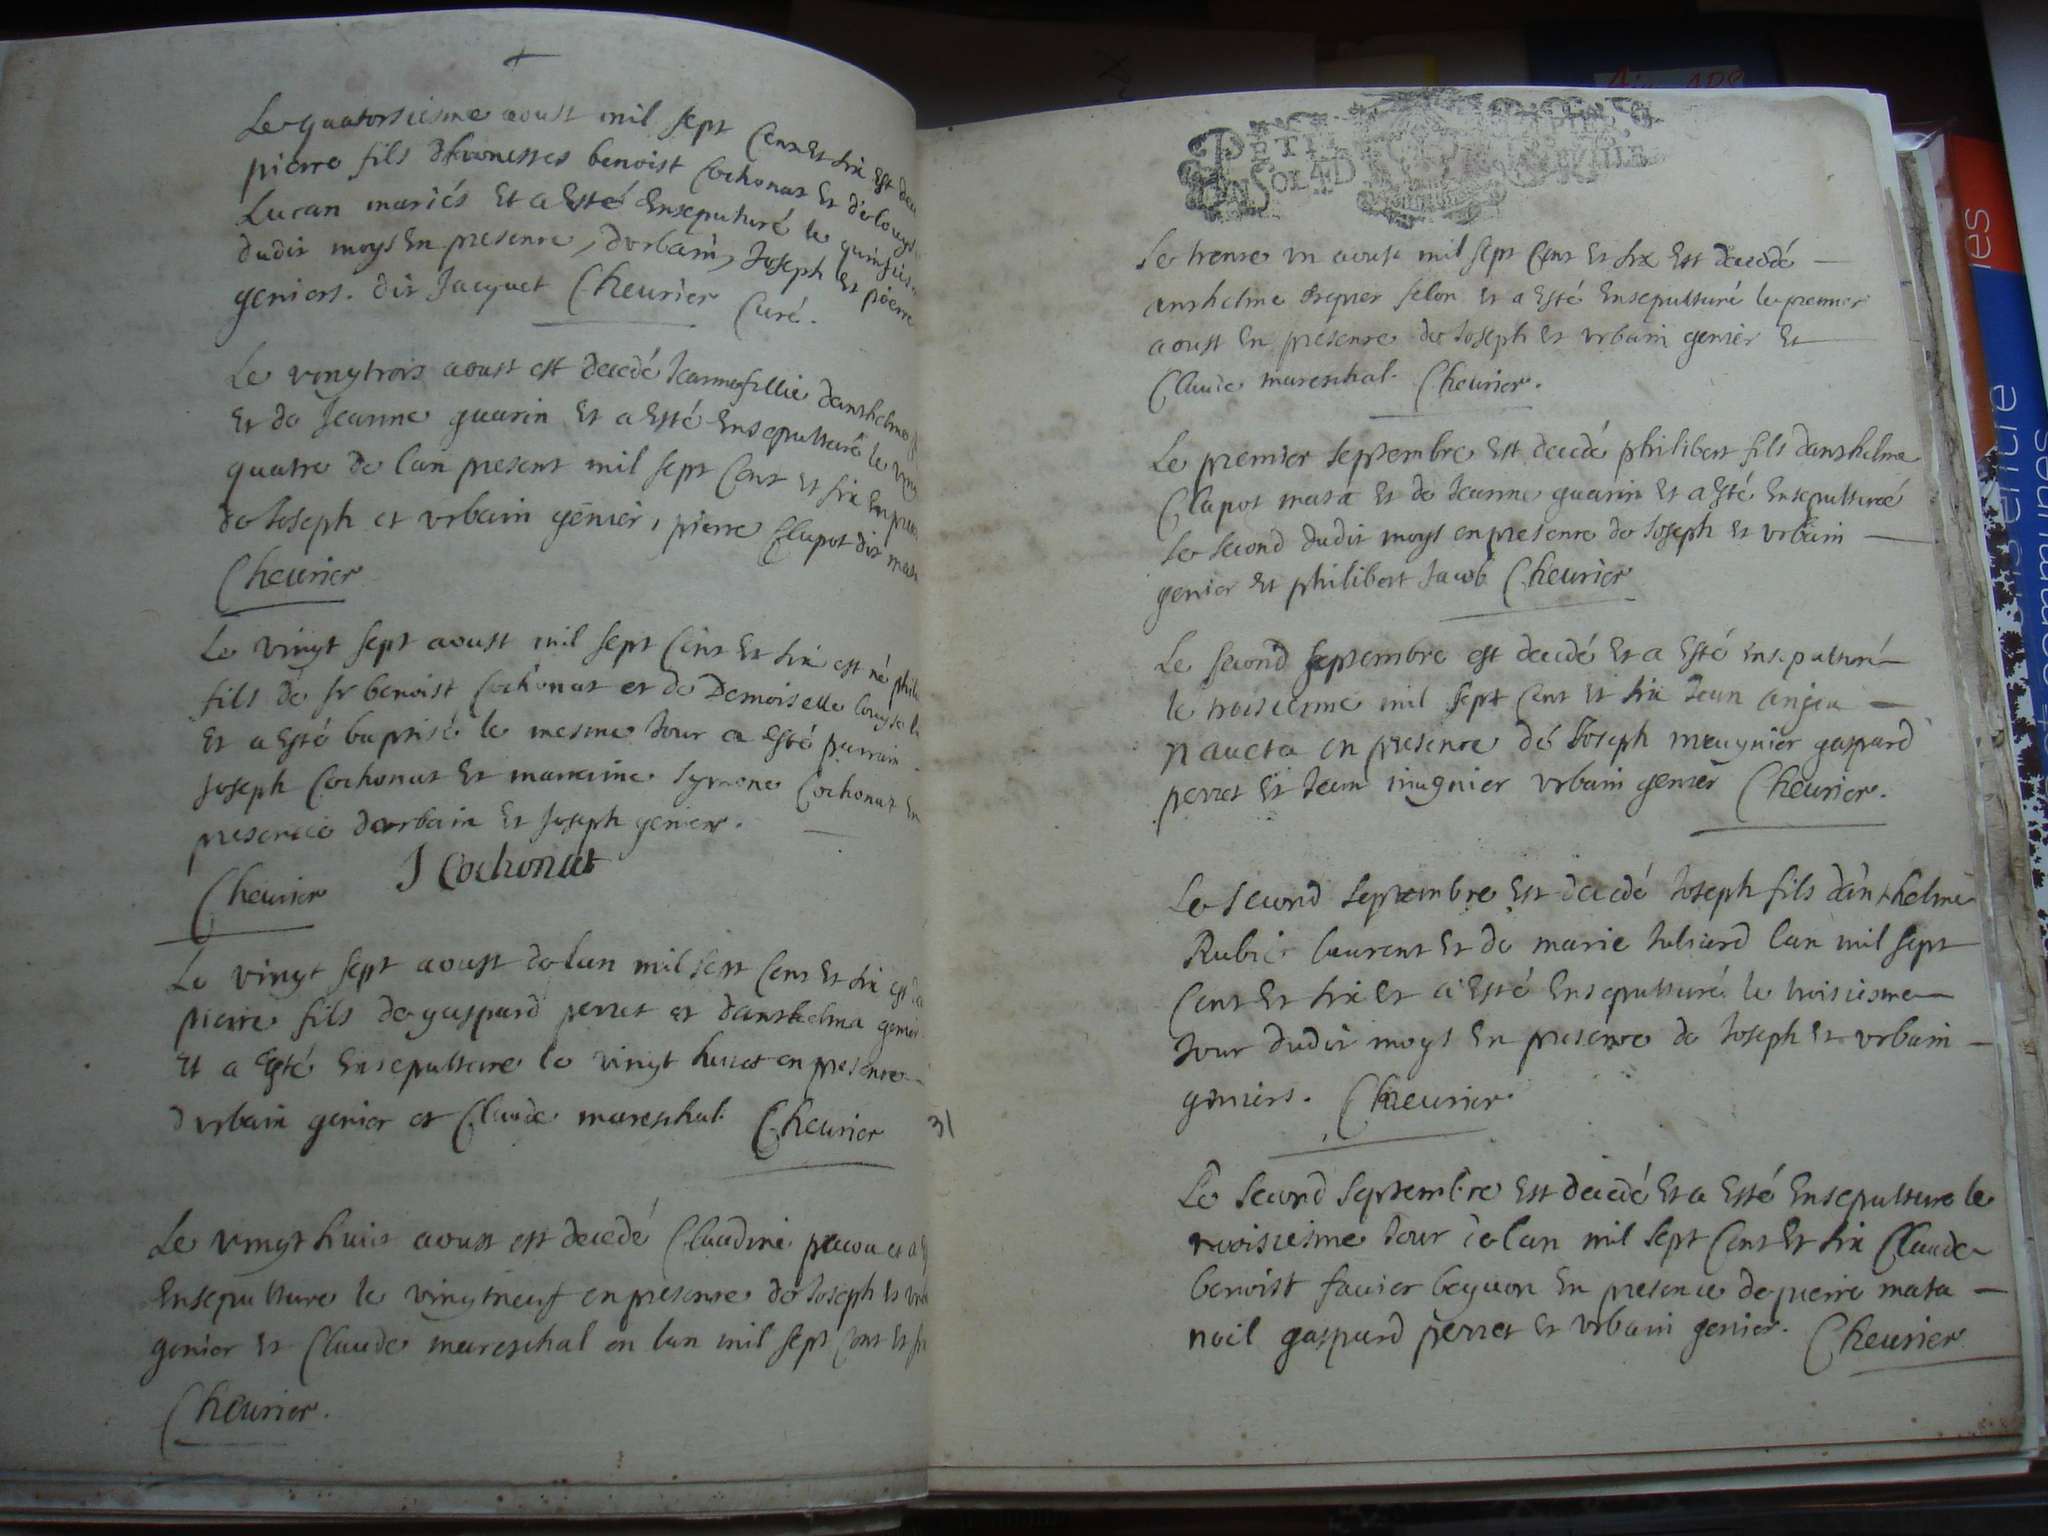 Le quatorsiesme aoust mil sept Cent et six Est
pierre fils benoist Cochonat Et
Lucan mariés Et a Esté Ensepulturé le
dudit moys En presence, durbain, Joseph Et pierre
geniers. dit Jacquet Cheurier Curé.
Le vingtrois aoust est decedé Jeanne fillie danthelme
Et de Jeanne guarin Et a Esté Ensepulturé le
quatre de lan present mil sept Cent et six
de Joseph et vrbain genier, pierre Clapot dit
Cheurier
Le vingt sept aoust mil sept Cent Et six est né
fils de sr benoist Cochonat et de Demoiselle
Et a Esté baptisé le mesme Jour a esté parrain
Joseph Cochonat Et marenine Symone Cochonat En
presence durbain Et Joseph genier.
Cheurier J Cochonat
Le vingt sept aoust de lan mil sept Cent Et six
pierre fils de gaspard perret et danthelma
Et a Esté Ensepulture le vingt huict en presence
durbain genier et Claude mareschal Cheurier
31
Le vingt huict aoust est decedé Claudine
Ensepulture le vingtneuf en presence de Joseph Et
genier Et Claude mareschal en lan mil sept Cent Et
Cheurier.
PETIT PAPIER
UN SOL 4D
Le trente vn aoust mil sept Cent Et six Est decedé
anthelme selon Et a Esté Ensepulturé le premier
aoust En presence de Joseph Et vrbain genier Et
Claude mareschal. Cheurier.
Le premier septembre Est decedé philibert fils danthelme
Clapot mata Et de Jeanne guarin Et a Esté Ensepulturé
Le second dudit moys en presence de Joseph Et vrbain
genier Et philibert Jacob Cheurier
Le second septembre est decedé Et a Esté Ensepulturé
le troisiesme mil sept Cent Et six Jean anjou
en presence de Joseph meugnier gaspard
perret Et Jean mugnier vrbain genier Cheurier.
Le second septembre Est decedé Joseph fils danthelme
Rubie laurent Et de marie Juliard lan mil sept
Cent Et six Et a Esté Ensepulturé le troisiesme
Jour dudit moys En presence de Joseph Et vrbain
geniers. Cheurier.
Le second septembre Est decedé Et a Esté Ensepulture le
troisiesme Jour de lan mil sept Cent Et six Claude
benoist fauier En presence de pierre mata
noil gaspard perret Et vrbain genier. Cheurier